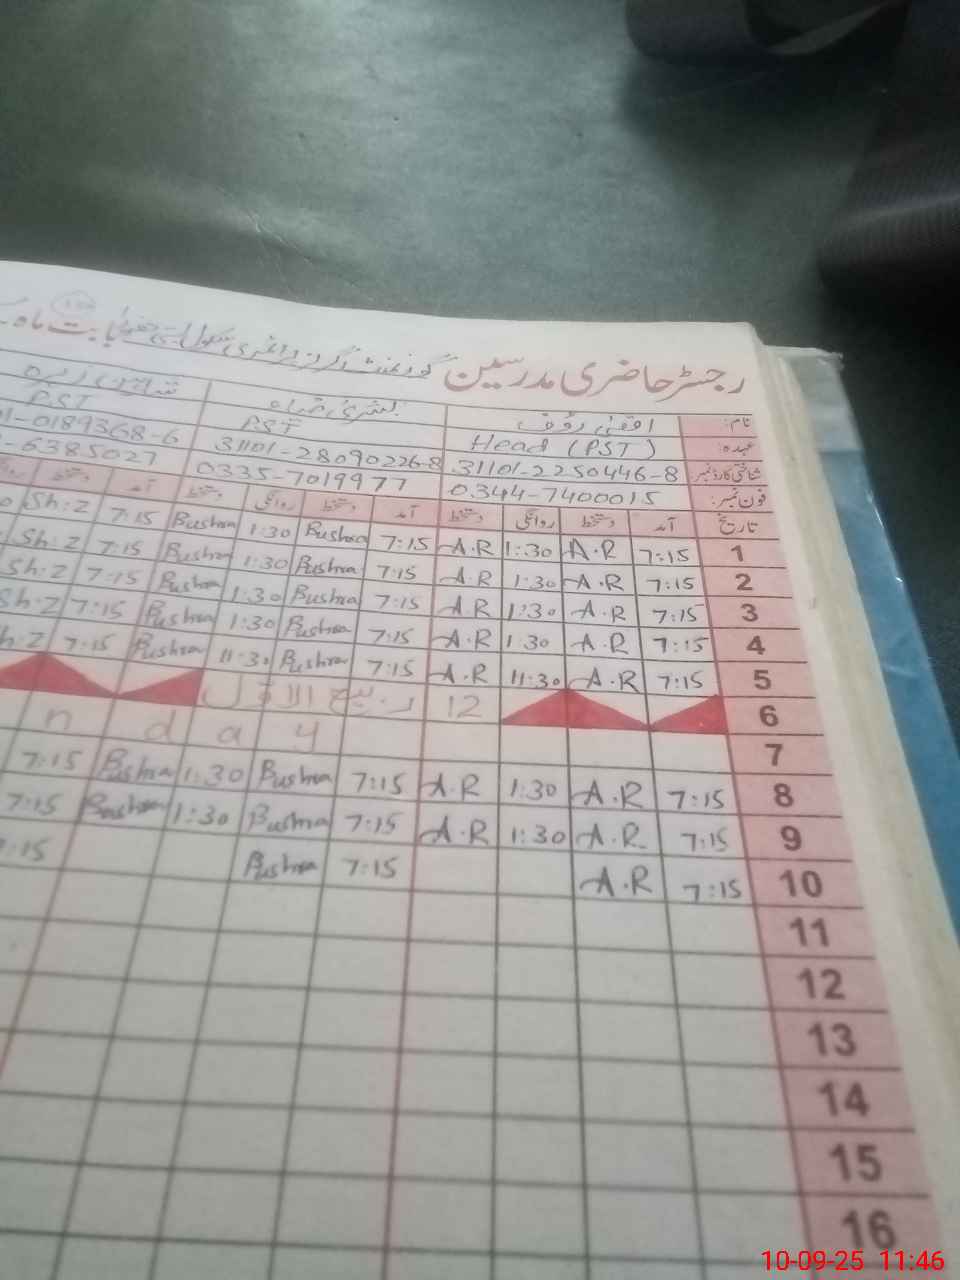 رجسٹر حاضری مدرسین گورنمنٹ گرلز پرائمری سکول بابت ماہ
نام: اقصیٰ رؤف بشریٰ
عہدہ: Head (PST) PST PST
شناختی کارڈ نمبر: 31101-2250446-8 31101-28090226-8 01-0189368-6
فون نمبر: 0344-7400015 0335-7019977 6385027
تاریخ آمد دستخط روانگی دستخط آمد دستخط روانگی دستخط آمد دستخط
1 7:15 A.R 1:30 A.R 7:15 Bushra 1:30 Bushra 7:15 Sh:Z
2 7:15 A.R 1:30 A.R 7:15 Bushra 1:30 Bushra 7:15 Sh:Z
3 7:15 A.R 1:30 A.R 7:15 Bushra 1:30 Bushra 7:15 Sh:Z
4 7:15 A.R 1:30 A.R 7:15 Bushra 1:30 Bushra 7:15 Sh:Z
5 7:15 A.R 11:30 A.R 7:15 Bushra 11:30 Bushra 7:15 Sh:Z
6 12 ربیع الاوّل
7 n d a y
8 7:15 A.R 1:30 A.R 7:15 Bushra 1:30 Bushra 7:15
9 7:15 A.R 1:30 A.R 7:15 Bushra 1:30 Bushra 7:15
10 7:15 A.R 7:15 Bushra 7:15
11
12
13
14
15
16
10-09-25 11:46